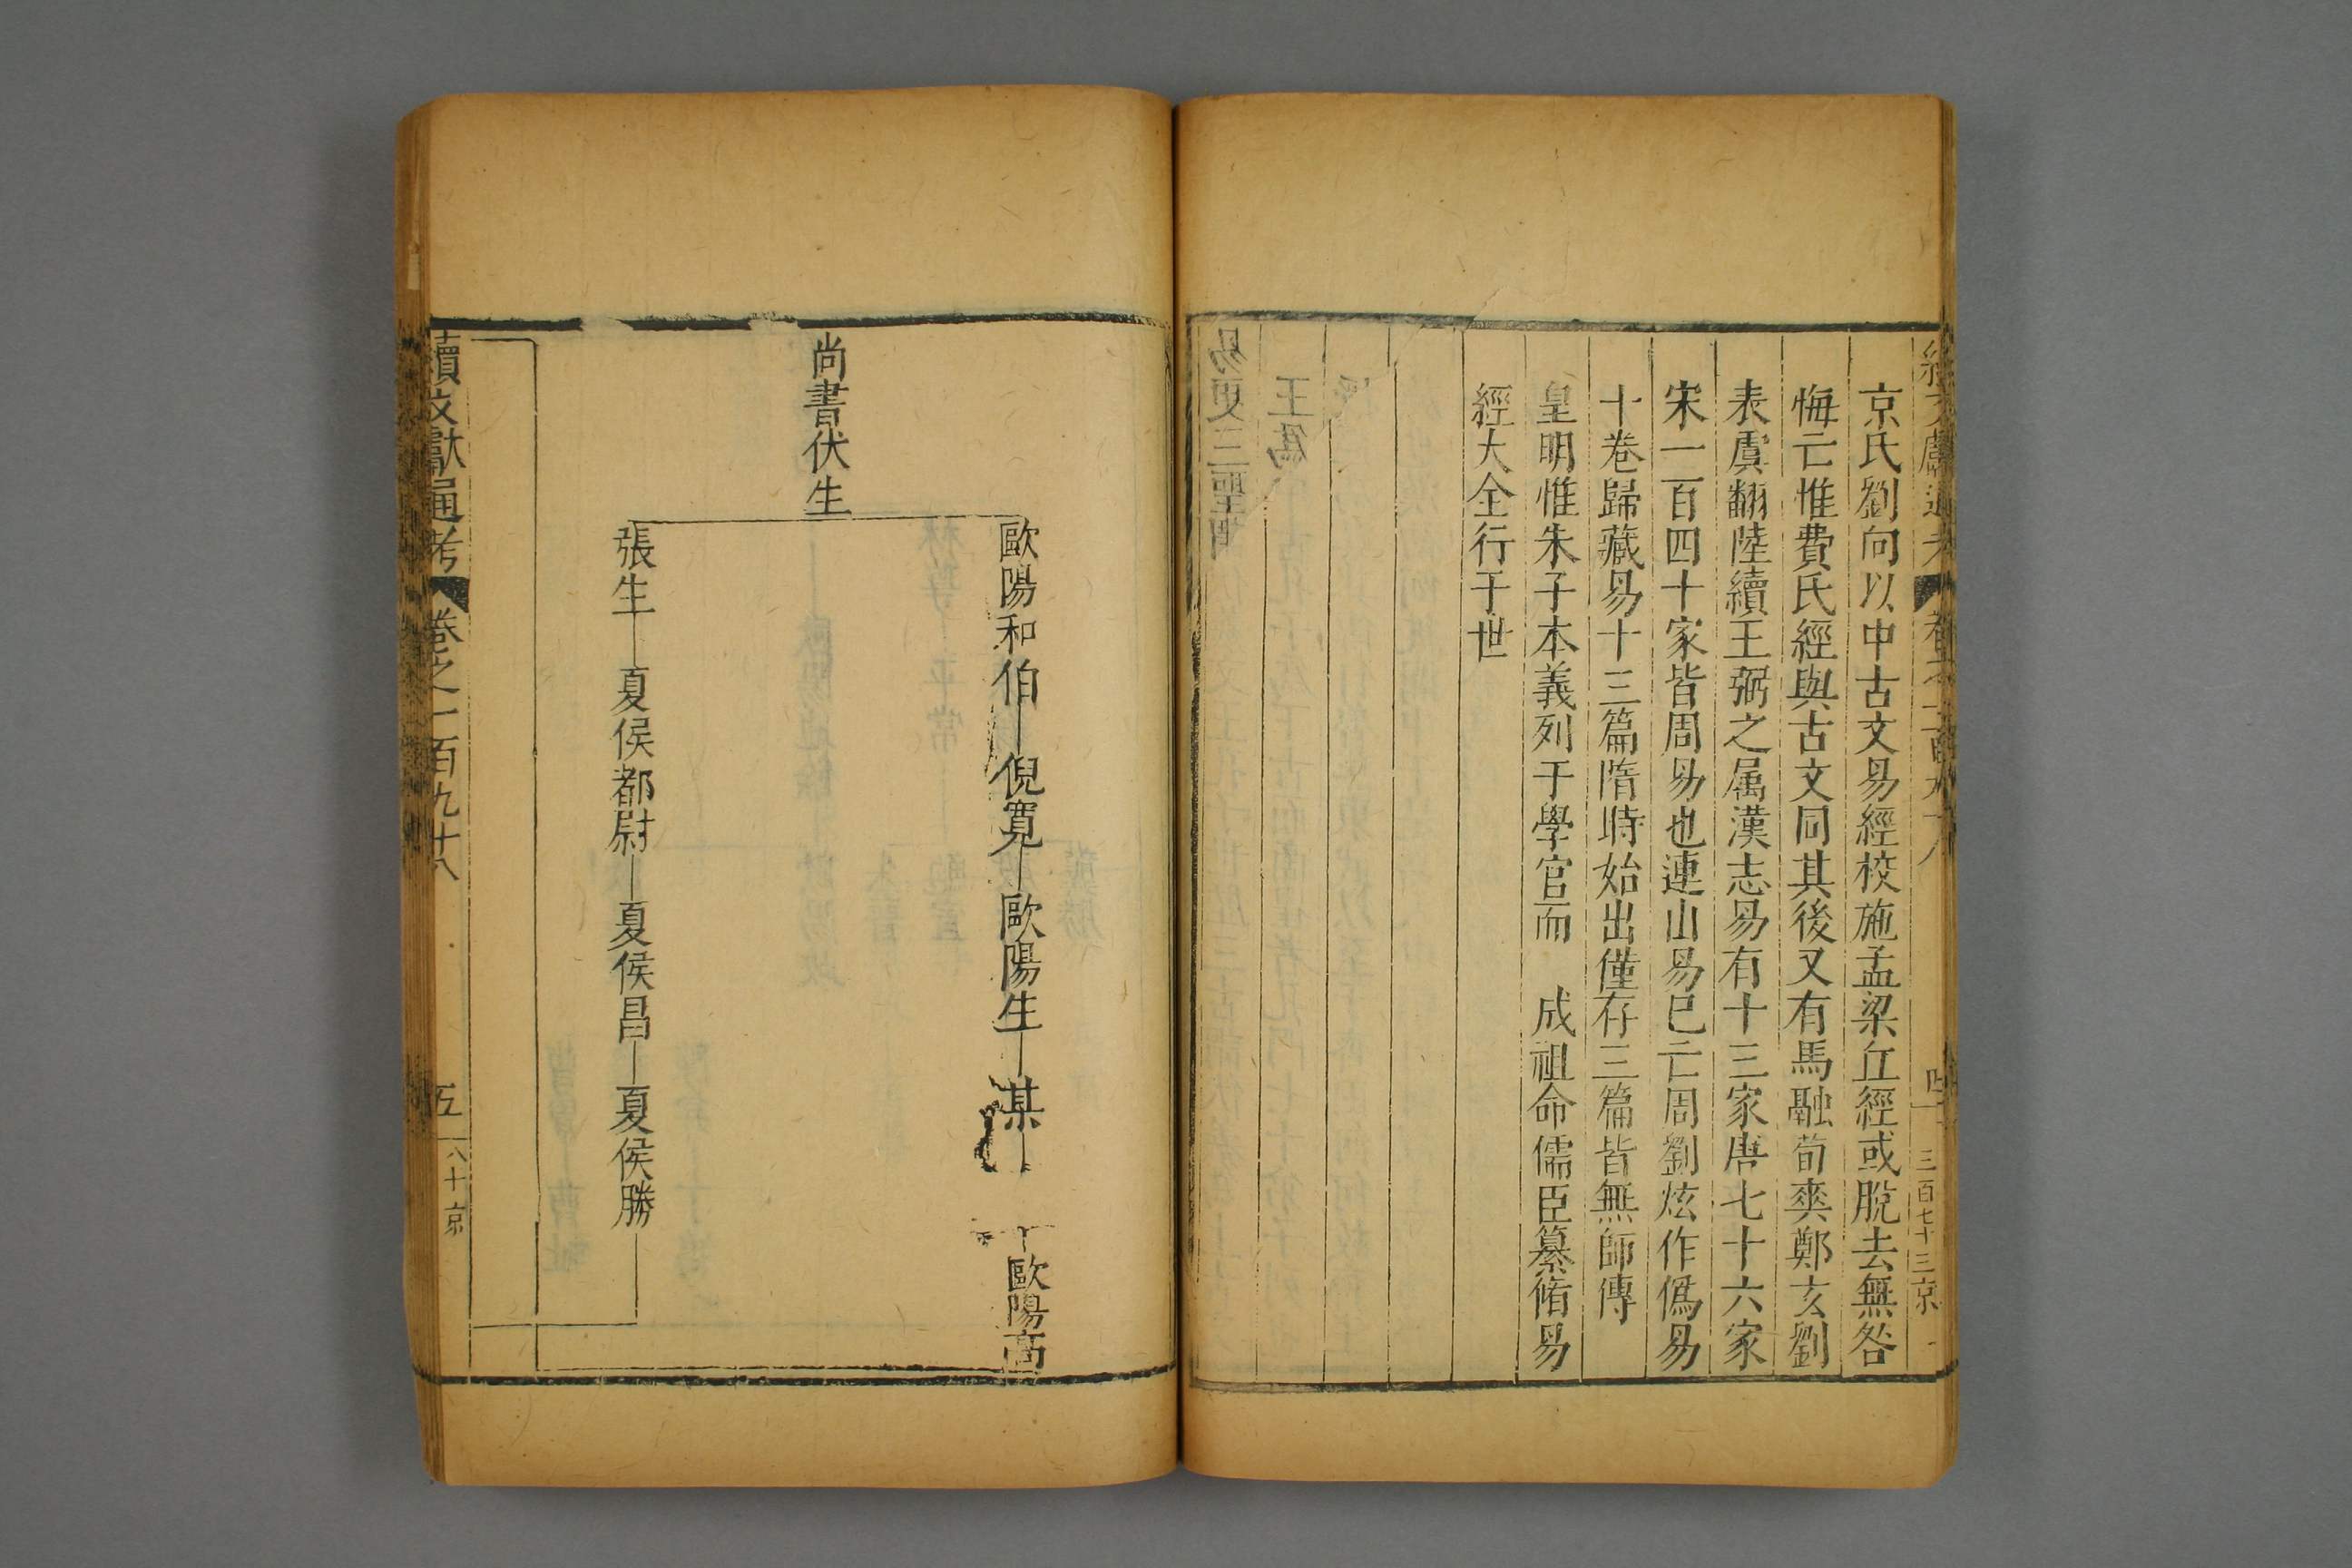 京氏劉向以中古文易經校施孟梁丘經或脫去無咎
悔亡惟費氏經與古文同其後又有馬融荀爽鄭玄劉
表虞翻陸續王弼之属漢志易有十三家唐七十六家
宋一百四十家皆周易也連山易已亡周劉炫作僞易
十卷歸藏易十三篇隋時始出僅存三篇皆無師傳
皇明惟朱子本義列于學官而 成祖命儒臣纂脩易
經大全行于世
三百七十三京
歐陽和伯 倪寬 歐陽生 某 歐陽高
尚書伏生
張生 夏侯都尉 夏侯昌 夏侯勝
續文獻通考 卷之一百九十八 五 八十京